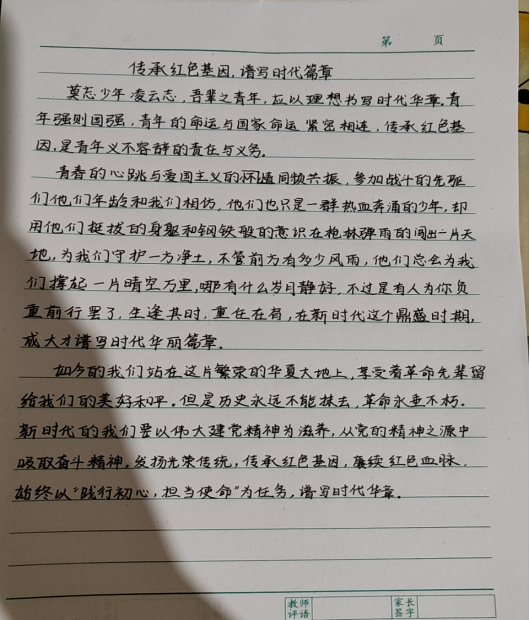 第 页
传承红色基因,谱写时代篇章
莫忘少年凌云志,吾辈之青年,应以理想书写时代华章。青
年强则国强,青年的命运与国家命运紧密相连,传承红色基
因,是青年义不容辞的责任与义务。
青春的心跳与爱国主义的怀揣同频共振,参加战斗的先驱
们他们年龄和我们相仿,他们也只是一群热血奔涌的少年,却
用他们挺拔的身躯和钢铁般的意识在枪林弹雨的闯出一片天
地,为我们守护一方净土,不管前方有多少风雨,他们总会为我
们撑起一片晴空万里,哪有什么岁月静好,不过是有人为你负
重前行罢了,生逢其时,重任在肩,在新时代这个鼎盛时期,
成大才谱写时代华丽篇章。
如今的我们站在这片繁荣的华夏大地上,享受着革命先辈留
给我们的美好和平。但是历史永远不能抹去,革命永垂不朽。
新时代的我们要以伟大建党精神为滋养,从党的精神之源中
吸取奋斗精神,发扬光荣传统,传承红色基因,赓续红色血脉,
始终以“践行初心,担当使命”为任务,谱写时代华章。
教师评语 家长签字